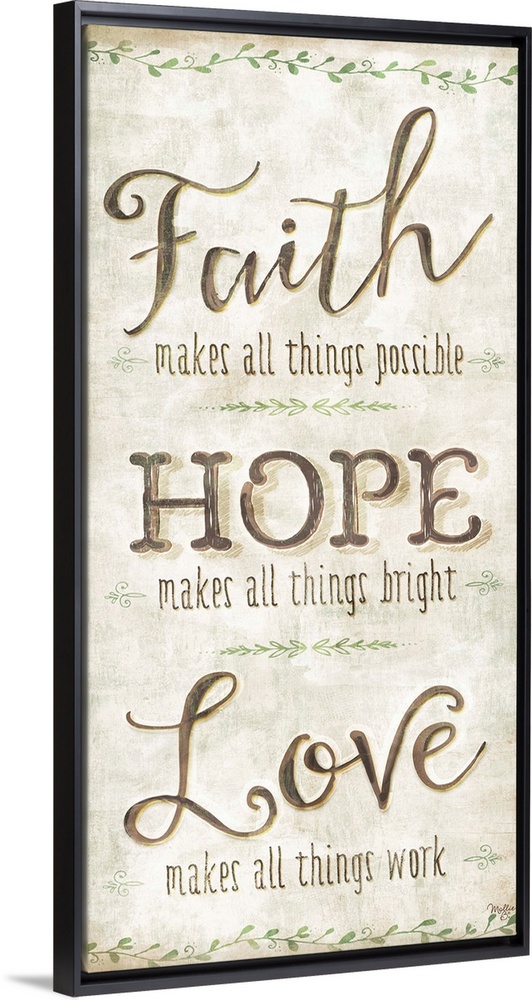 Faith
makes all things possible
HOPE
makes all things bright
Love
makes all things work
Mollie B.